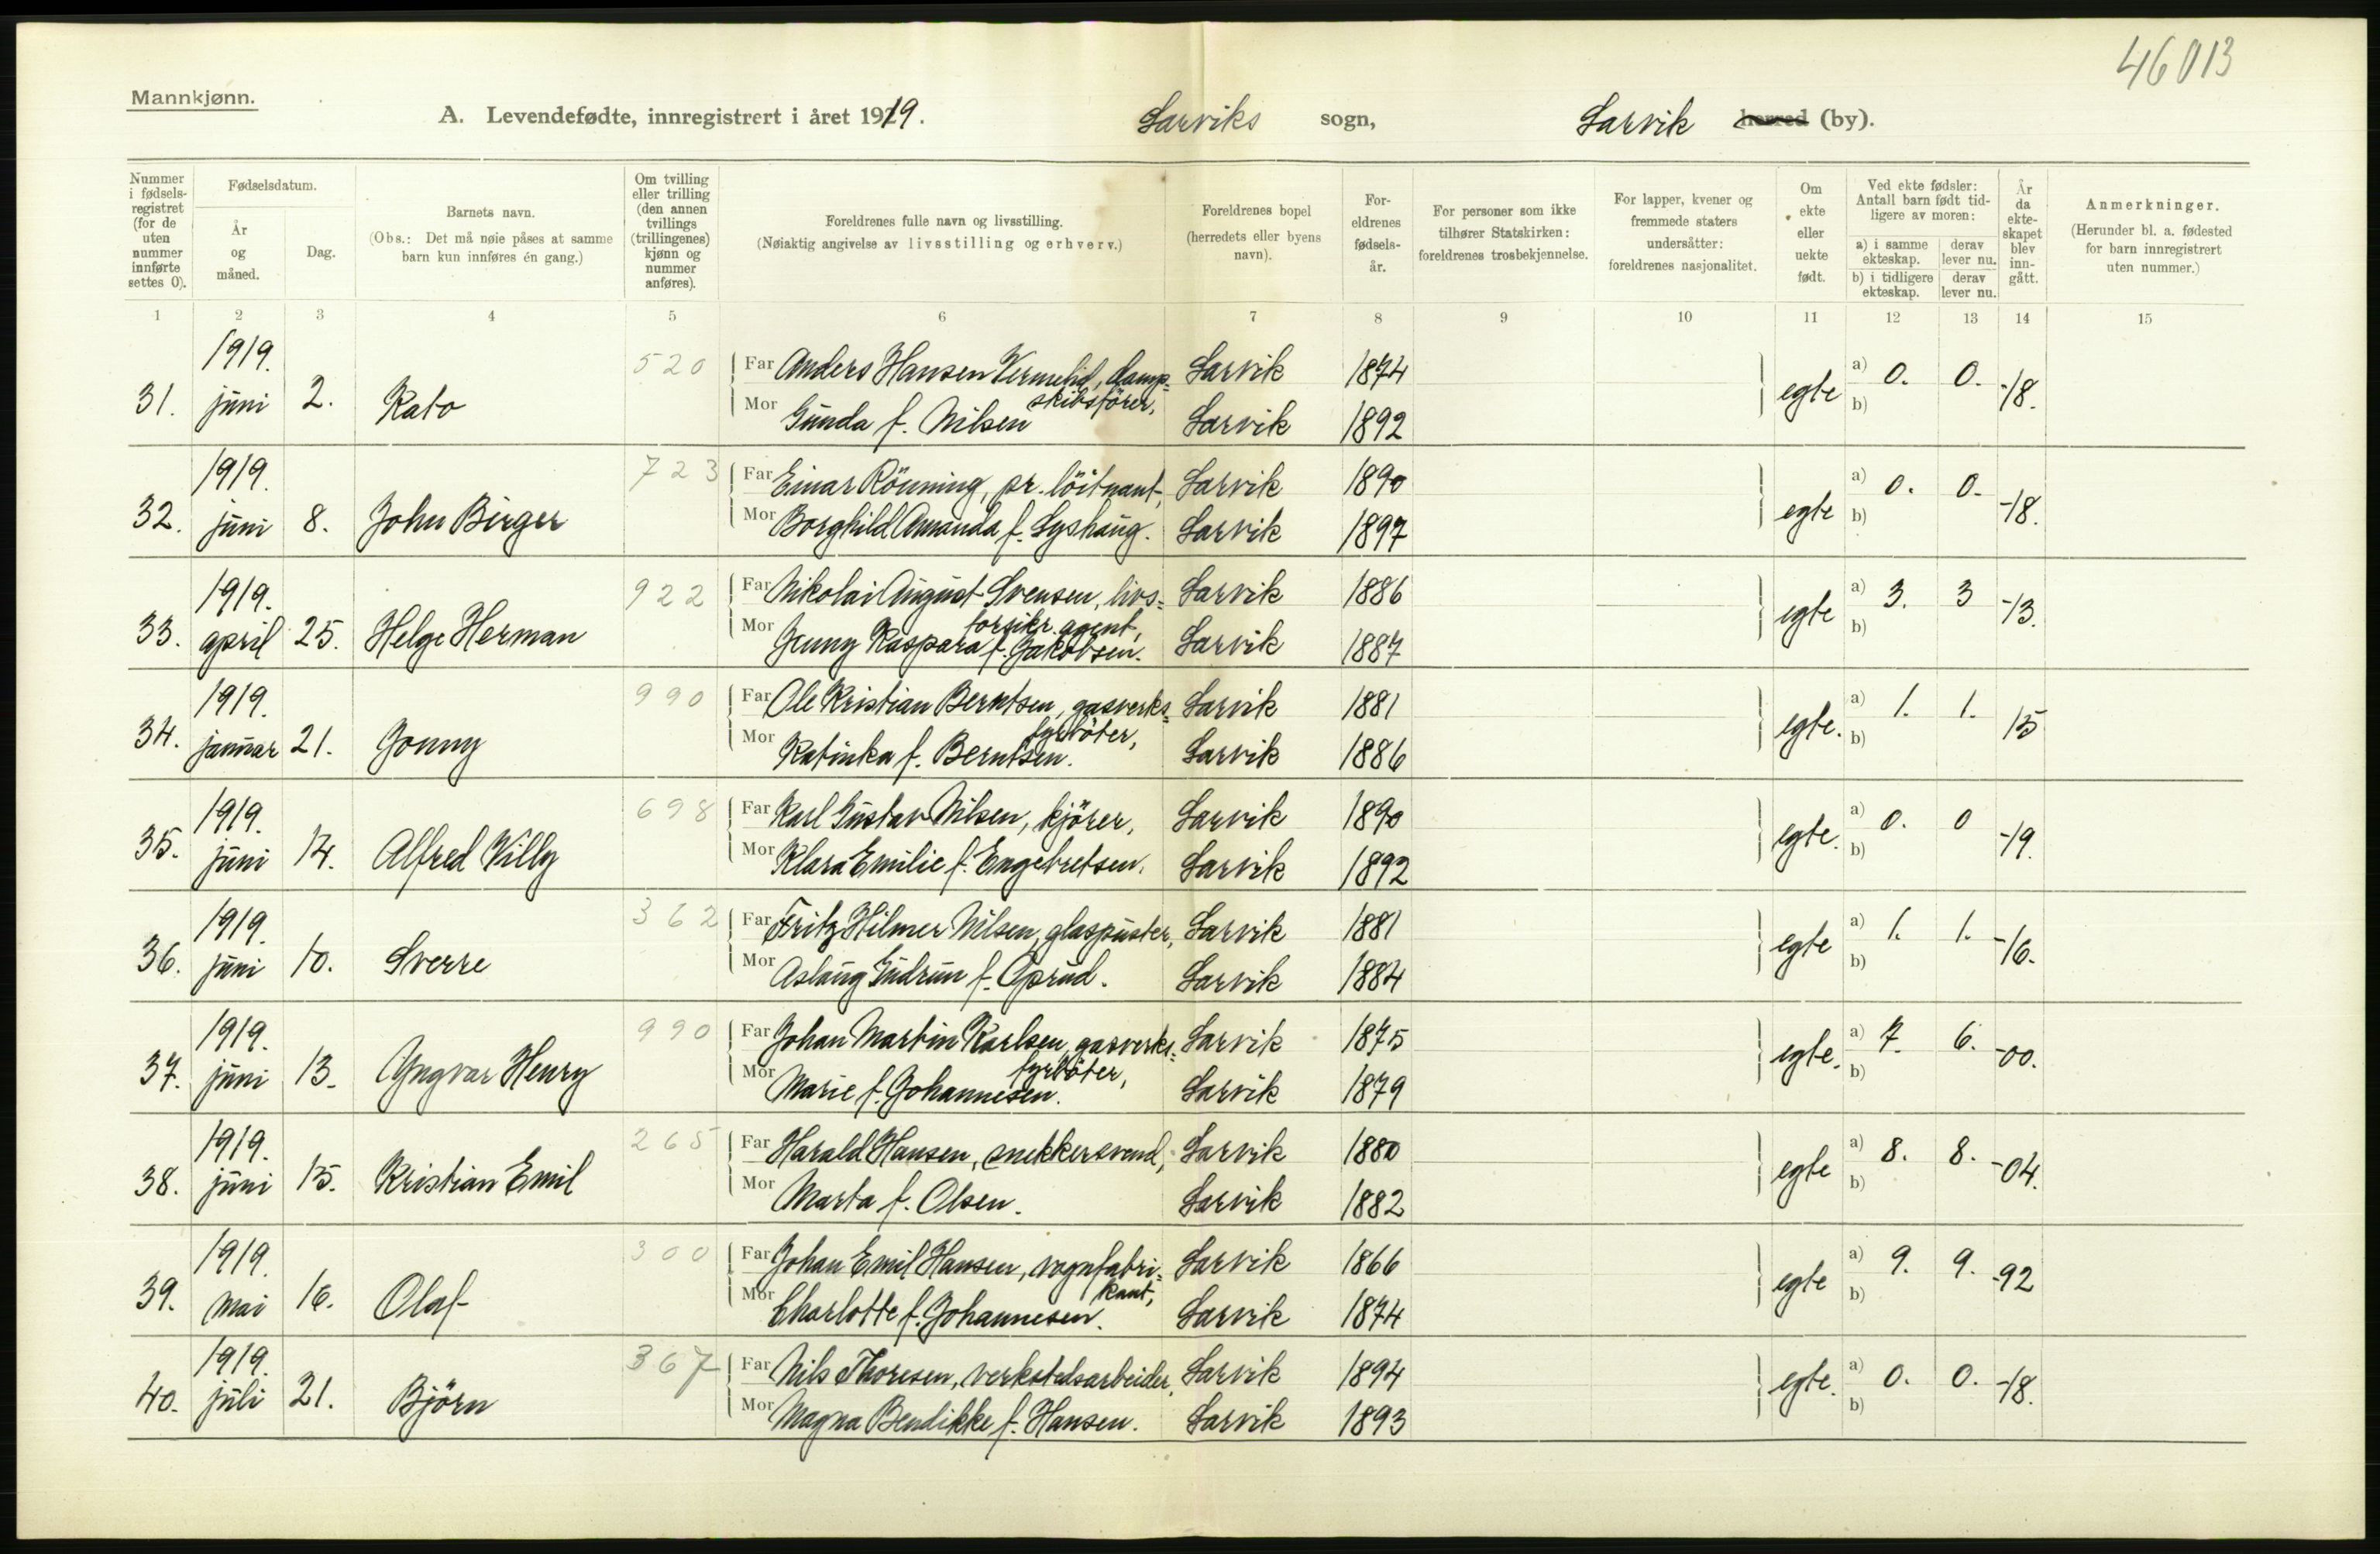 46013
Mannkjønn.
A. Levendefødte, innregistrert i året 1919. Larviks sogn, Larvik herred (by).
Nummer i fødselsregistret (for de uten nummer innførte settes 0).
Fødselsdatum.
År og måned.
Dag.
Barnets navn.
(Obs.: Det må nøie påses at samme barn kun innføres én gang.)
Om tvilling eller trilling (den annen tvillings (trillingenes) kjønn og nummer anføres).
Foreldrenes fulle navn og livsstilling.
(Nøiaktig angivelse av livsstilling og erhverv.)
Foreldrenes bopel (herredets eller byens navn).
Foreldrenes fødselsår.
For personer som ikke tilhører Statskirken: foreldrenes trosbekjennelse.
For lapper, kvener og fremmede staters undersåtter: foreldrenes nasjonalitet.
Om ekte eller uekte født.
Ved ekte fødsler: Antall barn født tidligere av moren:
a) i samme ekteskap. derav lever nu.
b) i tidligere ekteskap. derav lever nu.
År da ekteskapet blev inngått.
Anmerkninger.
(Herunder bl. a. fødested for barn innregistrert uten nummer.)
1 2 3 4 5 6 7 8 9 10 11 12 13 14 15
31. 1919. juni 2. Kato 520 Far Anders Hansen Vermelid, dampskibsförer, Larvik 1874 egte a) 0. 0. -18.
Mor Gunda f. Nilsen Larvik 1892 b)
32. 1919. juni 8. John Birger 723 Far Einar Rönning, pr. löitnant, Larvik 1890 egte a) 0. 0. -18.
Mor Borghild Amanda f. Lyshaug. Larvik 1897 b)
33. 1919. april 25. Helge Herman 922 Far Nikolai August Svensen, livsforsikr. agent, Larvik 1886 egte a) 3. 3 -13.
Mor Jenny Kaspara f. Jakobsen. Larvik 1887 b)
34. 1919. januar 21. Jonny 990 Far Ole Kristian Berntsen, gasverksfyrböter, Larvik 1881 egte. a) 1. 1. 15
Mor Katinka f. Berntsen. Larvik 1886 b)
35. 1919. juni 14. Alfred Villy 698 Far Karl Gustav Nilsen, kjörer, Larvik 1890 egte. a) 0. 0 -19.
Mor Klara Emilie f. Engebretsen. Larvik 1892 b)
36. 1919. juni 10. Sverre 362 Far Fritz Hilmer Nilsen, glaspuster, Larvik 1881 egte a) 1. 1. -16.
Mor Aslaug Gudrun f. Larvik 1884 b)
37. 1919. juni 13. Yngvar Henry 990 Far Johan Martin Karlsen, gasverksfyrböter, Larvik 1875 egte. a) 7. 6. -00.
Mor Marie f. Johannesen. Larvik 1879 b)
38. 1919. juni 15. Kristian Emil 265 Far Harald Hansen, snekkersvend, Larvik 1880 egte a) 8. 8. -04.
Mor Marta f. Olsen. Larvik 1882 b)
39. 1919. mai 16. Olaf 300 Far Johan Emil Hansen, vognfabrikant, Larvik 1866 egte a) 9. 9. -92
Mor Charlotte f. Johannesen. Larvik 1874 b)
40. 1919. juli 21. Björn 367 Far Nils Thoresen, verkstedsarbeider, Larvik 1894 egte. a) 0. 0. -18.
Mor Magna Bendikke f. Hansen. Larvik 1893 b)